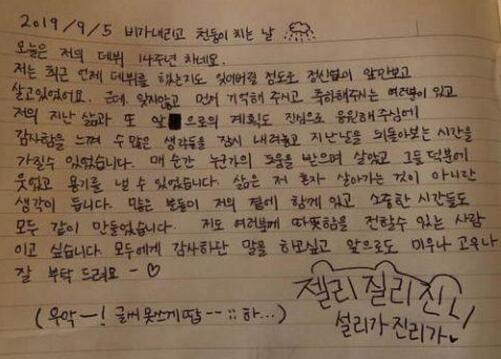 2019/9/5 비가내리고 천둥이 치는 날
오늘은 저의 데뷔 14주년 차네요.
저는 최근 언제 데뷔를 했는지도 잊어버릴 정도로 정신없이 앞만보고
살고있었어요. 근데, 잊지않고 먼저 기억해 주시고 축하해주시는 여러분이 있고
저의 지난 삶과 또 앞으로의 계획도 진심으로 응원해주심에
감사함을 느껴 수 많은 생각들을 잠시 내려놓고 지난날을 되돌아보는 시간을
가질수 있었습니다. 매 순간 누군가의 도움을 받으며 살았고 그들 덕분에
웃었고 용기를 낼 수 있었습니다. 삶은 저 혼자 살아가는 것이 아니란
생각이 듭니다. 많은 분들이 저의 곁에 함께 있고 소중한 시간들도
모두 같이 만들었습니다. 저도 여러분께 따뜻함을 전할수 있는 사람
이고 싶습니다. 모두에게 감사하단 말을 하고싶고 앞으로도 미우나 고우나
잘 부탁 드려요 ~ ♡
(우악ー! 글씨 못쓰게땀 -- ;; 하...)
젤리 질리 진니
설리가 진리가♥